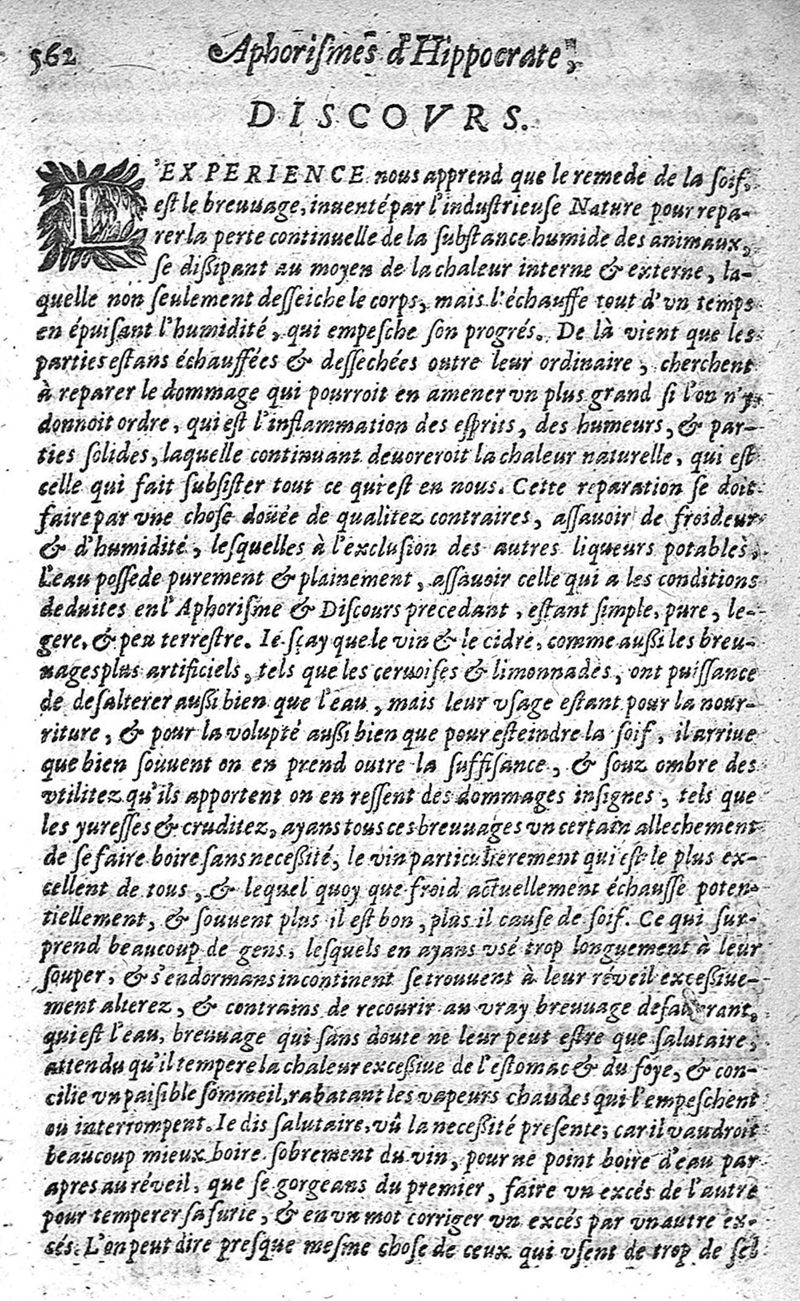 562 Aphorismes d'Hippocrate,
DISCOVRS.
L'EXPERIENCE nous apprend que le remede de la soif,
est le breuuage, inuenté par l'industrieuse Nature pour repa-
rer la perte continuelle de la substance humide des animaux,
se dißipant au moyen de la chaleur interne & externe, la-
quelle non seulement desseiche le corps, mais l'échauffe tout d'vn temps
en épuisant l'humidité, qui empesche son progrés. De là vient que les
parties estans échauffées & dessechées outre leur ordinaire, cherchent
à reparer le dommage qui pourroit en amener vn plus grand si l'on n'y
donnoit ordre, qui est l'inflammation des esprits, des humeurs, & par-
ties solides, laquelle continuant deuoreroit la chaleur naturelle, qui est
celle qui fait subsister tout ce qui est en nous. Cette reparation se doit
faire par vne chose doüée de qualitez contraires, assauoir de froideur
& d'humidité, lesquelles à l'exclusion des autres liqueurs potables,
l'eau possede purement & plainement, assauoir celle qui a les conditions
deduites en l'Aphorisme & Discours precedant, estant simple, pure, le-
gere, & peu terrestre. Ie sçay que le vin & le cidre, comme außi les breu-
uages plus artificiels, tels que les ceruoises & limonnades, ont puissance
de desalterer außi bien que l'eau, mais leur vsage estant pour la nour-
riture, & pour la volupté außi bien que pour esteindre la soif, il arriue
que bien souuent on en prend outre la suffisance, & souz ombre des
vtilitez qu'ils apportent on en ressent des dommages insignes, tels que
les yuresses & cruditez, ayans tous ces breuuages vn certain allechement
de se faire boire sans neceßité, le vin particulierement qui est le plus ex-
cellent de tous, & lequel quoy que froid actuellement échauffe poten-
tiellement, & souuent plus il est bon, plus il cause de soif. Ce qui sur-
prend beaucoup de gens, lesquels en ayans vsé trop longuement à leur
souper, & s'endormans incontinent se trouuent à leur réveil exceßiue-
ment alterez, & contrains de recourir au vray breuuage desalterant,
qui est l'eau, breuuage qui sans doute ne leur peut estre que salutaire,
attendu qu'il tempere la chaleur exceßiue de l'estomac & du foye, & con-
cilie vn paisible sommeil, rabatant les vapeurs chaudes qui l'empeschent
ou interrompent. Ie dis salutaire, vû la neceßité presente; car il vaudroit
beaucoup mieux boire sobrement du vin, pour ne point boire d'eau par
apres au réveil, que se gorgeans du premier, faire vn excés de l'autre
pour temperer sa furie, & en vn mot corriger vn excés par vn autre ex-
cés. L'on peut dire presque mesme chose de ceux qui vsent de trop de sel